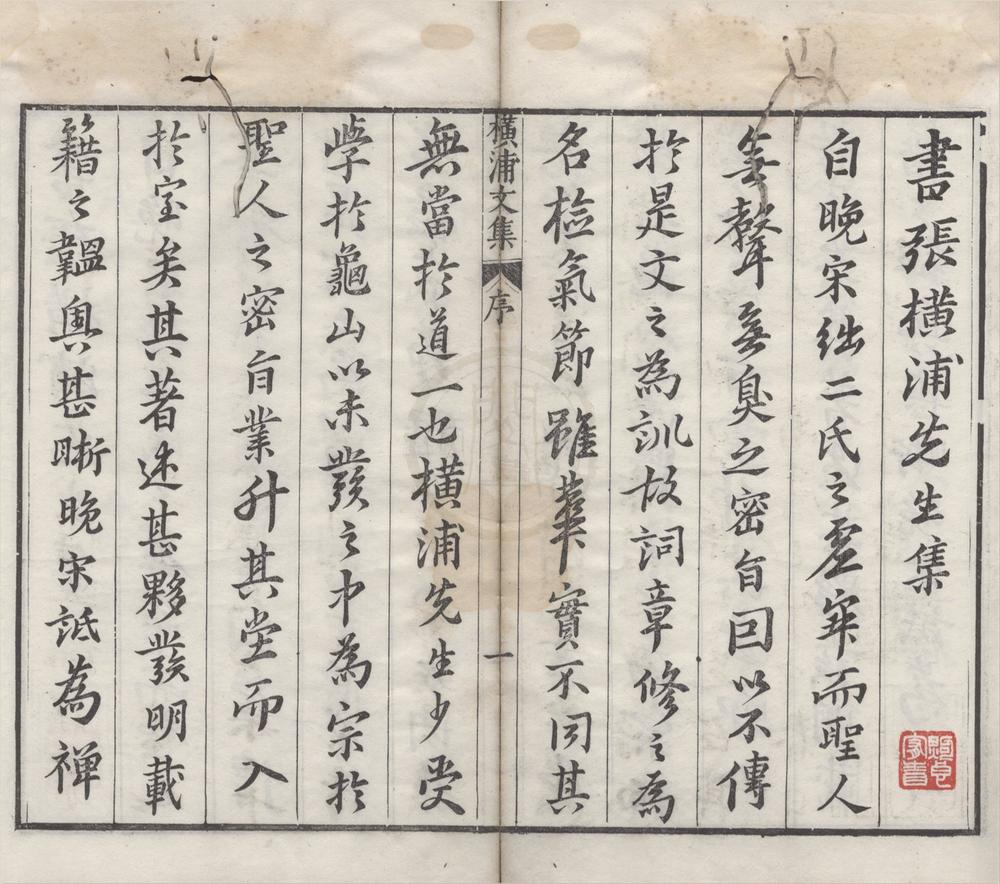 書張橫浦先生集
自晚宋絀二氏之虛寂而聖人
無聲無臭之密旨因以不傳
於是文之為訓故詞章修之為
名檢氣節雖華實不同其
橫浦文集
序
一
無當於道一也橫浦先生少受
學於龜山以未發之中為宗於
聖人之密旨業升其堂而入
於室矣其著述甚夥發明載
籍之韞奧甚晰晚宋詆為禪